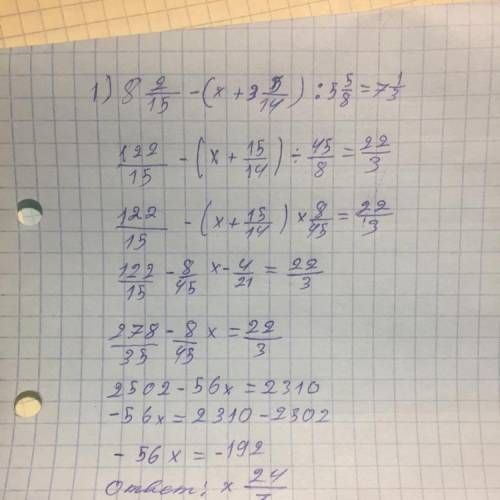 1) 8 2/15 - (x + 3 5/14) : 5 5/8 = 7 1/3
122/15 - (x + 15/14) ÷ 45/8 = 22/3
122/15 - (x + 15/14) × 8/45 = 22/3
122/15 - 8/45 x - 4/21 = 22/3
278/35 - 8/45 x = 22/3
2502 - 56x = 2310
-56x = 2310 - 2302
- 56x = -192
Ответ: x 24